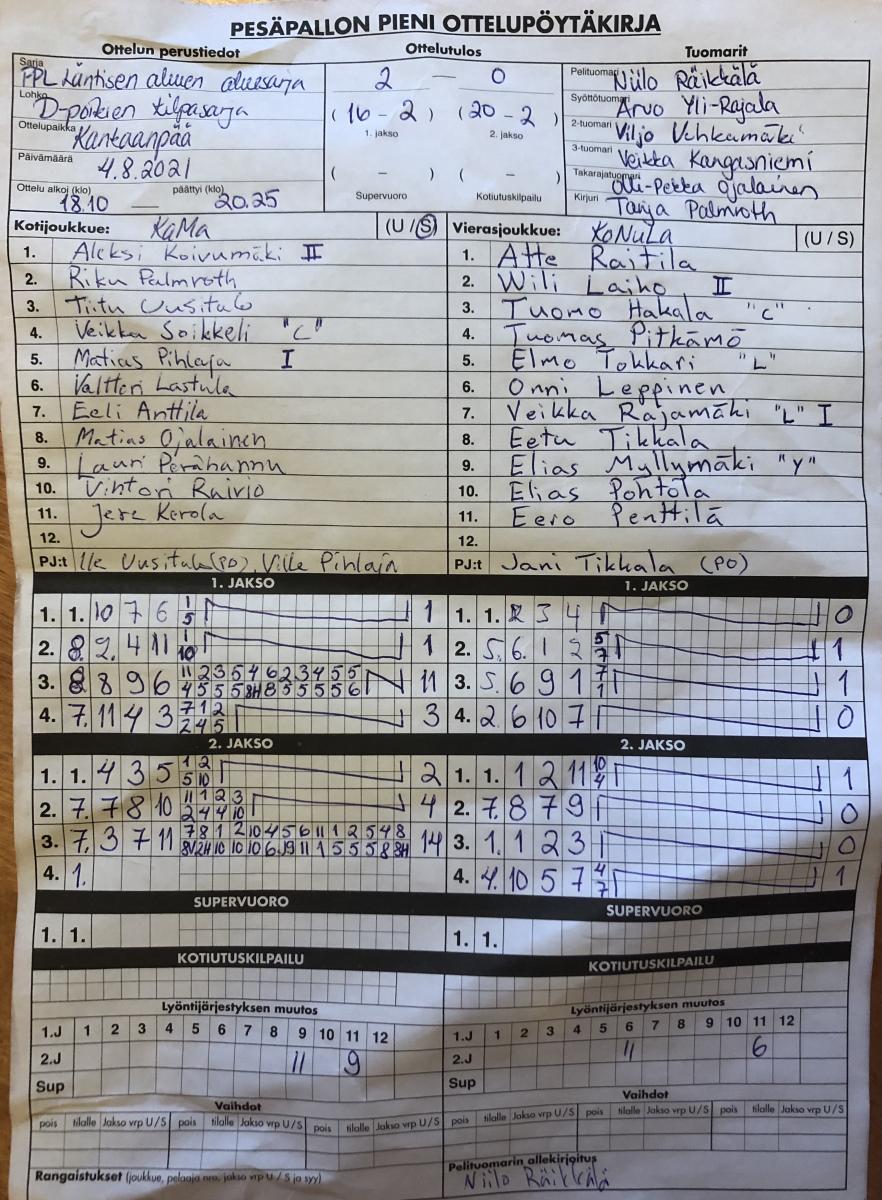 PESÄPALLON PIENI OTTELUPÖYTÄKIRJA
Ottelun perustiedot Ottelutulos Tuomarit
Sarja PPL Läntisen alueen aluesarja
Lohko D-poikien kilpasarja
Ottelupaikka Kantaanpää
Päivämäärä 4.8.2021
Ottelu alkoi (klo) päättyi (klo)
18.10 — 20.25
2 — 0
(16 - 2) (20 - 2)
1. jakso 2. jakso
( - ) ( - )
Supervuoro Kotiutuskilpailu
Pelituomari Niilo Räikkälä
Syöttötuomari Arvo Yli-Rajala
2-tuomari Viljo Vihkamäki
3-tuomari Veikka Kangasniemi
Takarajatuomari Olli-Pekka Ojalainen
Kirjuri Tanja Palmroth
Kotijoukkue: KaMa (U / S)
1. Aleksi Koivumäki II
2. Riku Palmroth
3. Tiitu Uusitalo
4. Veikka Soikkeli "C"
5. Matias Pihlaja I
6. Valtteri Lastula
7. Eeli Anttila
8. Matias Ojalainen
9. Lauri Perähannu
10. Vihtori Raivio
11. Jere Kerola
12.
PJ:t Ile Uusitalo (PO), Ville Pihlaja
Vierasjoukkue: KoNuLa (U / S)
1. Atte Raitila
2. Wili Laiho II
3. Tuomo Hakala "C"
4. Tuomas Pitkämö
5. Elmo Tokkari "L"
6. Onni Leppinen
7. Veikka Rajamäki "L" I
8. Eetu Tikkala
9. Elias Myllymäki "Y"
10. Elias Pohtola
11. Eero Penttilä
12.
PJ:t Jani Tikkala (PO)
1. JAKSO
1. 1. 10 7 6 1 1
5
2. 8. 2. 4 11 1 1
10
3. 8 8 9 6 11 2 3 5 4 6 2 3 4 5 5 11
4 5 5 5 8H 8 5 5 5 5 6
4. 7. 11 4 3 7 1 2 3
2 4 5
2. JAKSO
1. 1. 4 3 5 1 2 2
5 10
2. 7. 7 8 10 11 1 2 3 4
2 4 4 10
3. 7. 3 7 11 7 8 1 2 10 4 5 6 11 1 2 5 4 8 14
10 10 10 6 11 1 5 5 5 8 8H
4. 1.
SUPERVUORO
1. 1.
KOTIUTUSKILPAILU
1. JAKSO
1. 1. 3 4 0
2. 5. 6. 1 2 5 1
7
3. 5. 6 9 1 7 1
1
4. 2. 6 10 7 0
2. JAKSO
1. 1. 1 2 11 10 1
4
2. 7. 8 7 9 0
3. 1. 1 2 3 0
4. 4. 10 5 7 4 1
7
SUPERVUORO
1. 1.
KOTIUTUSKILPAILU
Lyöntijärjestyksen muutos
1.J 1 2 3 4 5 6 7 8 9 10 11 12
2.J 11 9
Sup
Vaihdot
pois tilalle Jakso vrp U / S pois tilalle Jakso vrp U / S pois tilalle Jakso vrp U / S
Rangaistukset (joukkue, pelaaja nro, jakso vrp U / S ja syy)
Lyöntijärjestyksen muutos
1.J 1 2 3 4 5 6 7 8 9 10 11 12
2.J 11 6
Sup
Vaihdot
pois tilalle Jakso vrp U / S pois tilalle Jakso vrp U / S pois tilalle Jakso vrp U / S
Pelituomarin allekirjoitus
Niilo Räikkälä